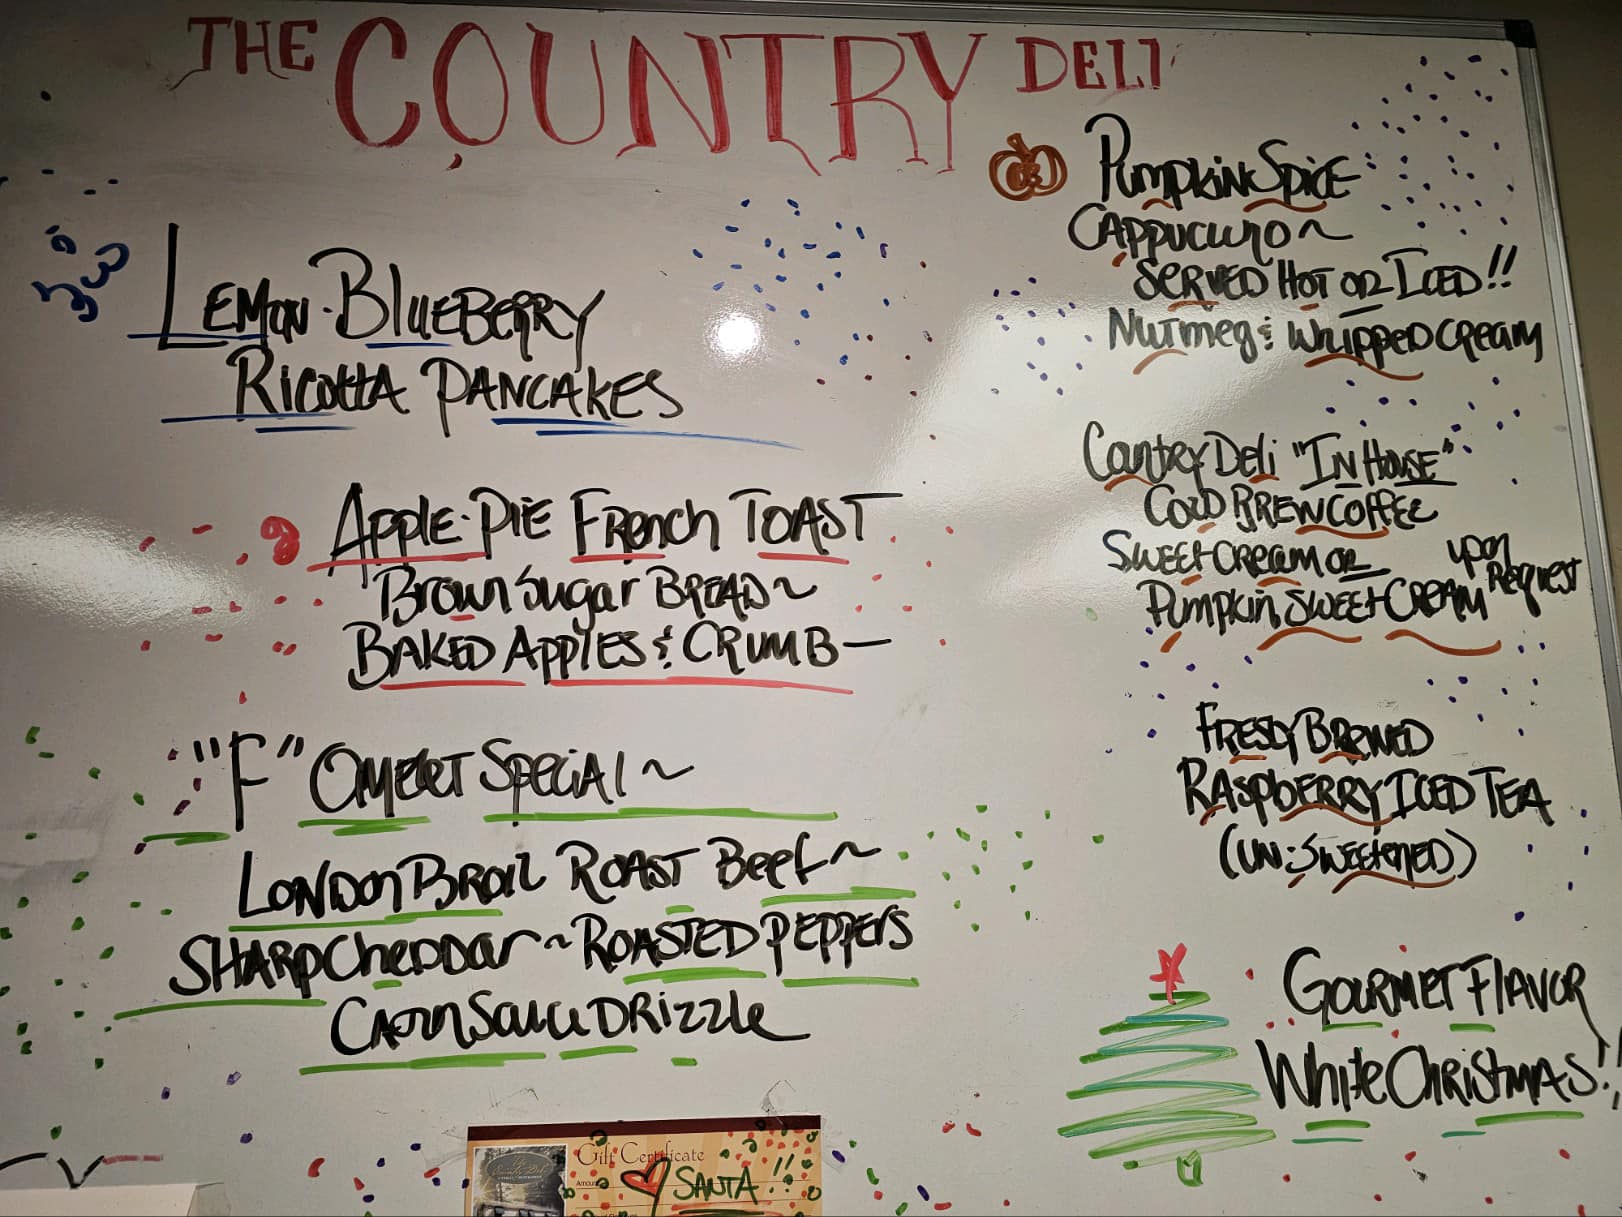 THE COUNTRY DELI
LEMON-BLUEBERRY
RICOTTA PANCAKES
APPLE-PIE FRENCH TOAST
BROWN SUGAR BREAD~
BAKED APPLES & CRUMB—
"F" OMELET SPECIAL~
LONDON BROIL ROAST BEEF~
SHARP CHEDDAR~ROASTED PEPPERS
SAUCE DRIZZLE
PUMPKIN SPICE
CAPPUCCINO~
SERVED HOT OR ICED!!
NUTMEG & WHIPPED CREAM
COUNTRY DELI "IN HOUSE"
COLD BREW COFFEE
SWEET CREAM OR
PUMPKIN SWEET CREAM
UPON
REQUEST
FRESLY BREWED
RASPBERRY ICED TEA
(UN-SWEETENED)
GOURMET FLAVOR
WHITE CHRISTMAS!!
Gift Certificate
SANTA!!